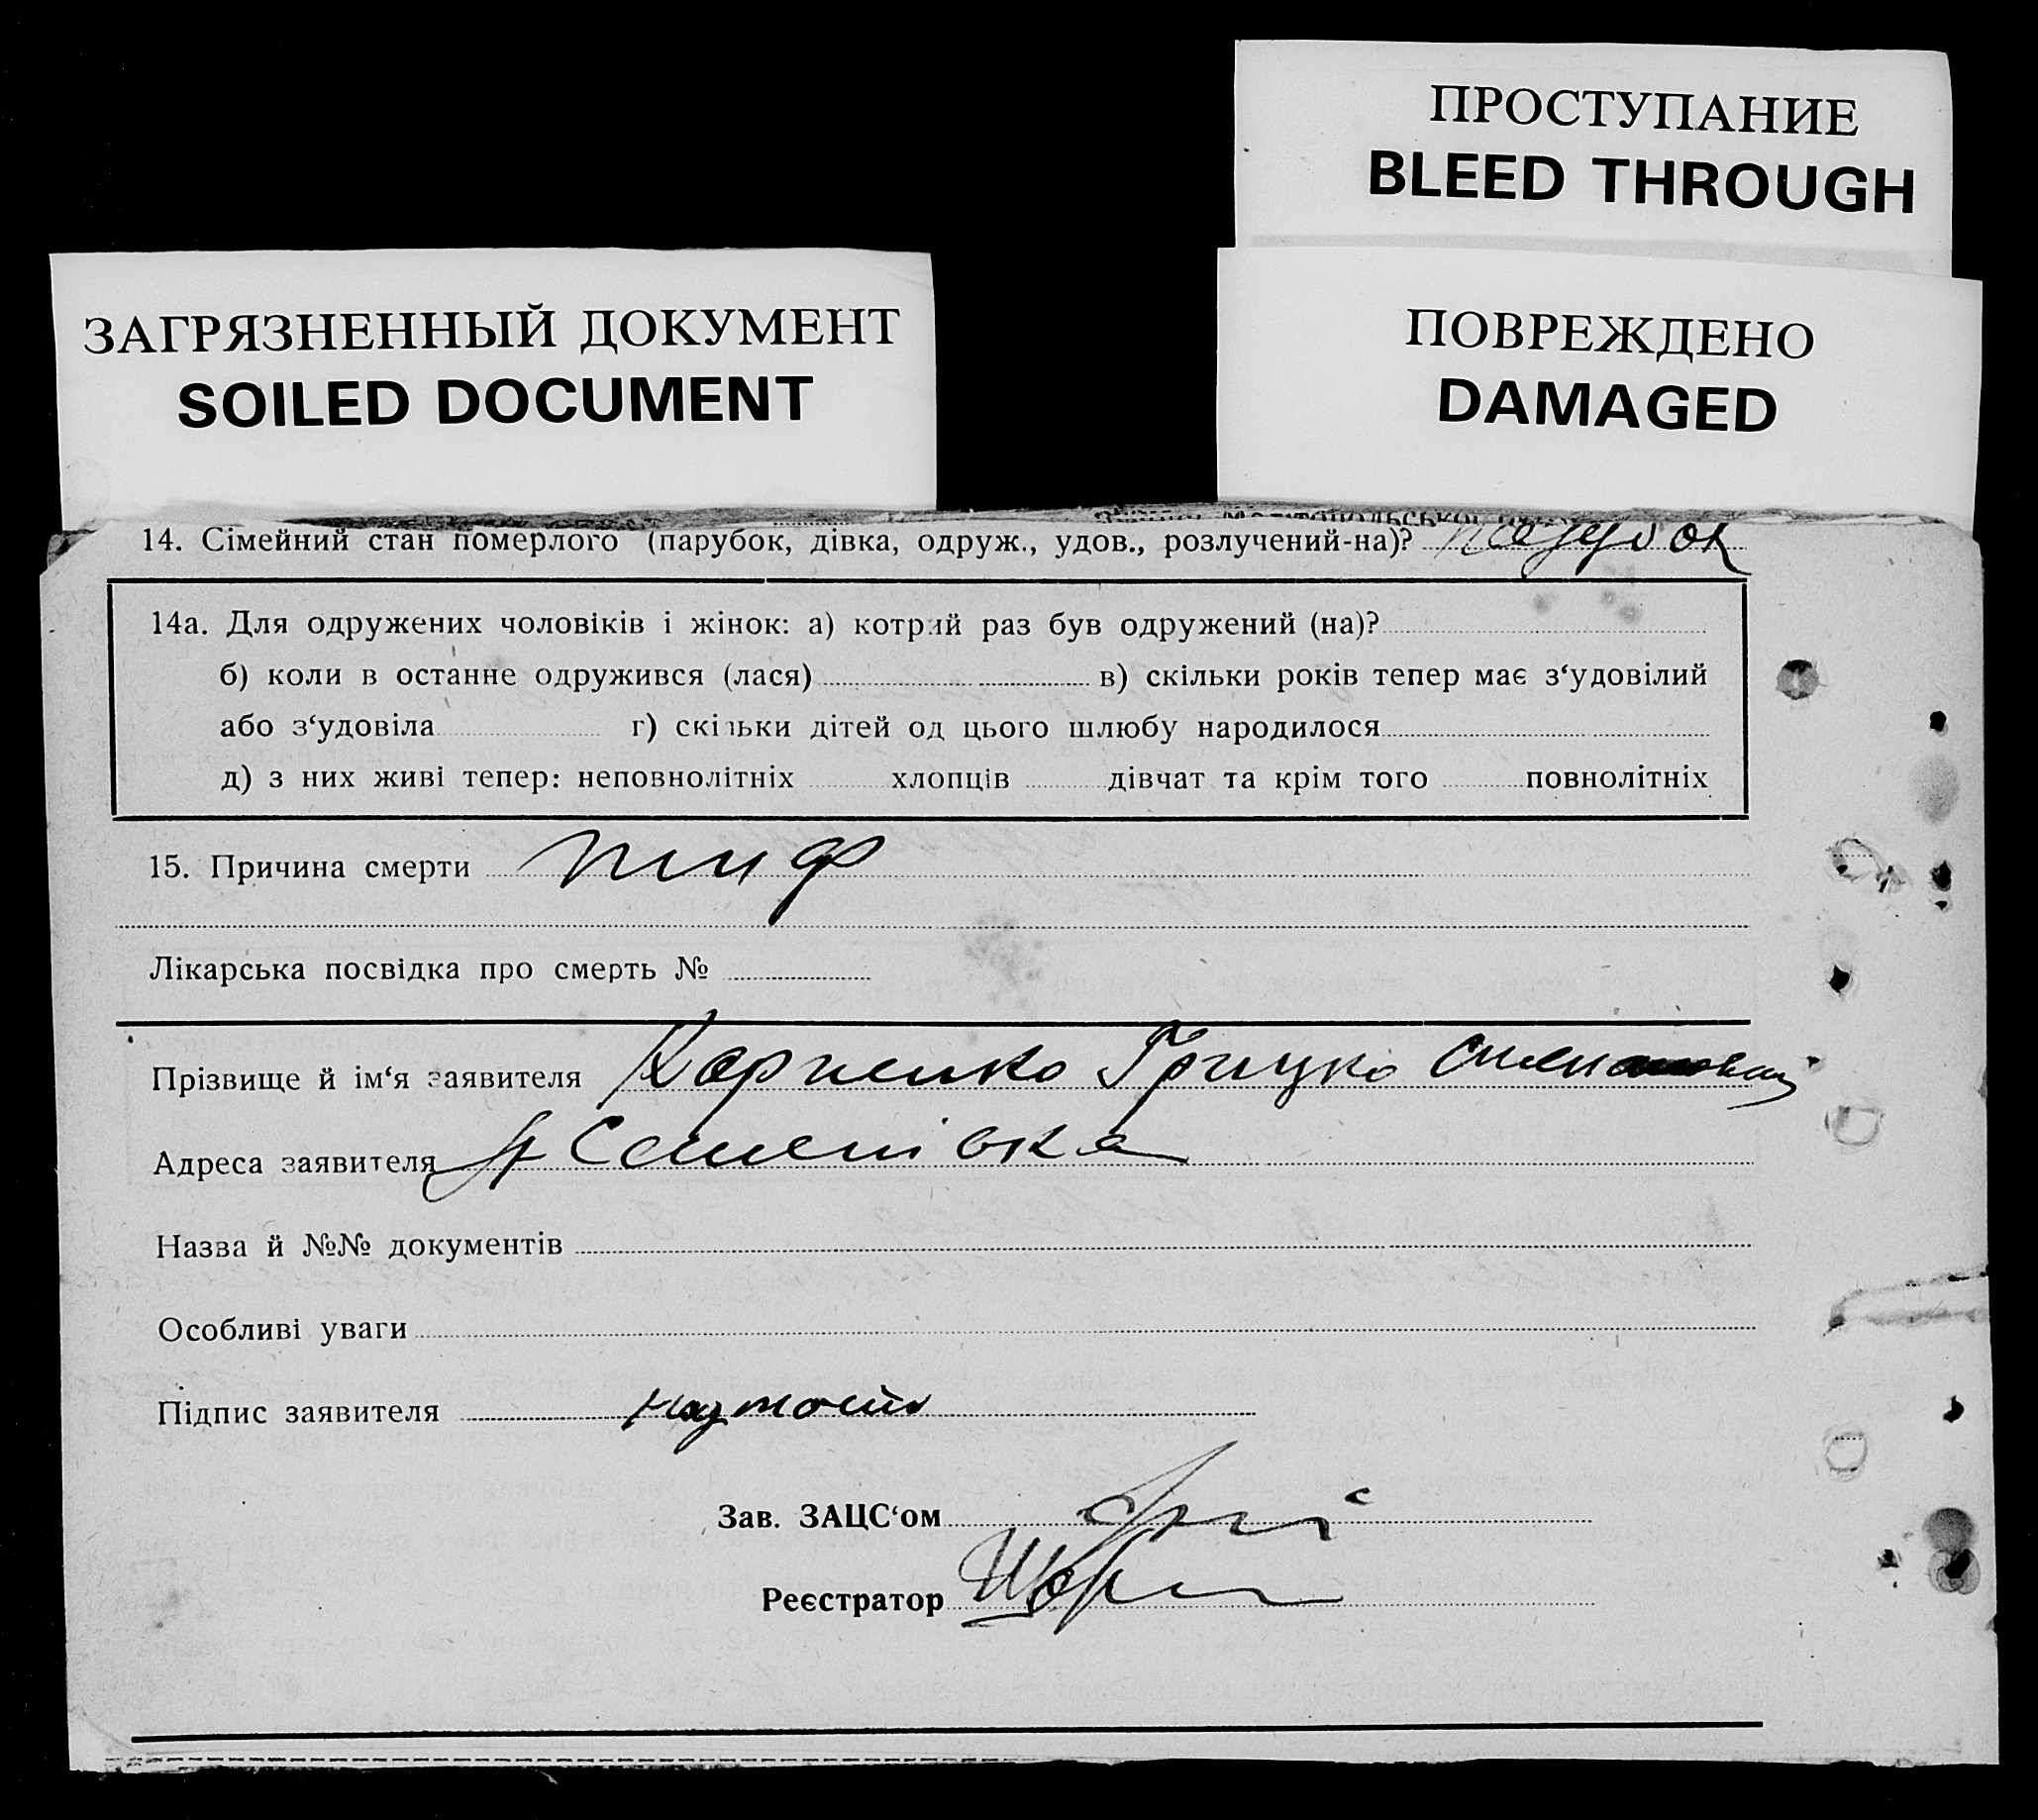 ПРОСТУПАНИЕ
BLEED THROUGH
ЗАГРЯЗНЕННЫЙ ДОКУМЕНТ
SOILED DOCUMENT
ПОВРЕЖДЕНО
DAMAGED
14. Сімейний стан померлого (парубок, дівка, одруж., удов., розлучений-на)?
14а. Для одружених чоловіків і жінок: а) котрий раз був одружений (на)?
б) коли в останне одружився (лася) в) скільки років тепер має з‘удовілий
або з‘удовіла г) скільки дітей од цього шлюбу народилося
д) з них живі тепер: неповнолітніх хлопців дівчат та крім того повнолітніх
15. Причина смерти тиф
Лікарська посвідка про смерть №
Прізвище й ім‘я заявителя Карпенко Грицко
Адреса заявителя Семенівка
Назва й №№ документів
Особливі уваги
Підпис заявителя
Зав. ЗАЦС‘ом
Реєстратор